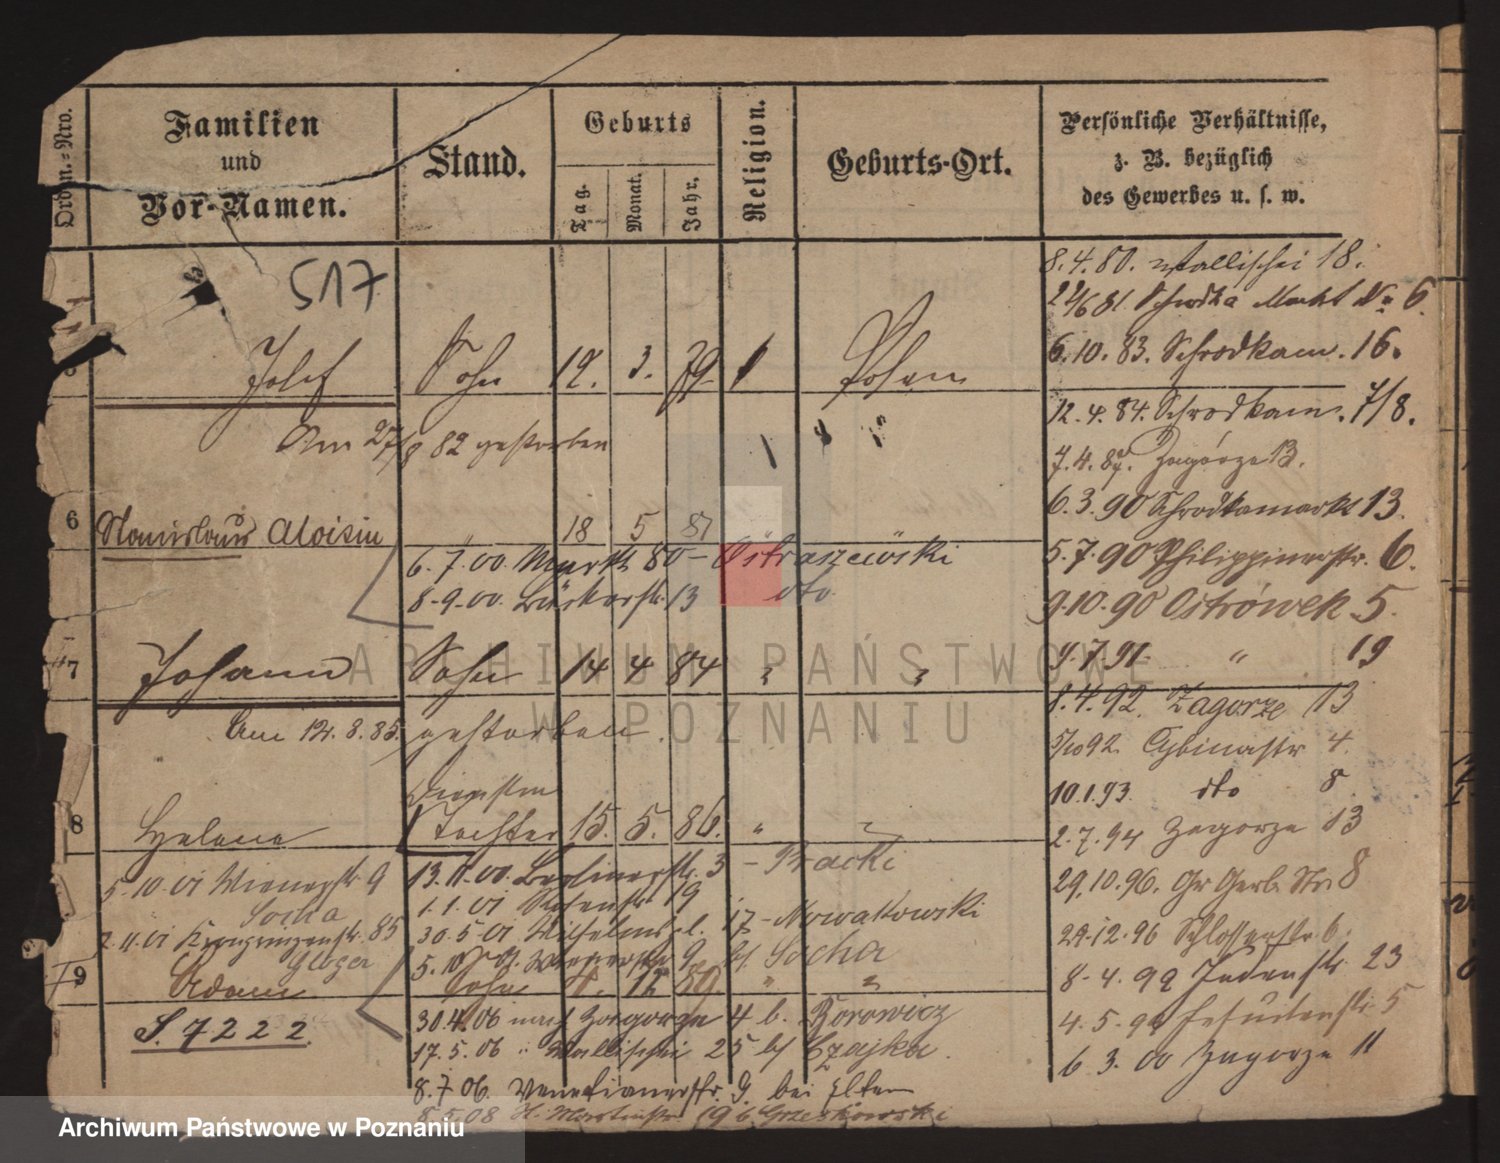 Ordn.-Nro.
Familien
und
Vor-Namen.
Stand.
Geburts
Tag.
Monat.
Jahr.
Religion.
Geburts-Ort.
Persönliche Verhältnisse,
z. B. bezüglich
des Gewerbes u. s. w.
517
8.4.80. Wallischei 18.
Schrodka Markt No 6.
6.10.83. Schrodkam. 16.
Josef Sohn 12. 3. 79 Posen
12.4.84. Schrodkam. 7/8.
Am 27/8 82 gestorben
7.4.87. Zagórze 13.
6.3.90 Schrodkamarkt 13.
6 Stanislaus Aloisiu " 18 5 81
5.7.90 Philippinerstr. 6.
6.7.00. Markt 80 - Ostraszewski
8.9.00. Bäckerstr. 13 dto
9.10.90 Ostrówek 5.
9.7.91 " 19
7 Johann Sohn 14 4 84 " "
8.4.92. Zagorze 13
Am 12.8.85. gestorben.
5/10 92. Cybinastr 4.
Dienstm
10.1.93. dto 8
8 Helena Tochter 15. 5. 86. " "
2.7.94 Zagorze 13
5.10.01 Wienerstr 9
Socha
13.11.00. Berlinerstr. 3 -
29.10.96. Gr Gerb. Str 8
1.1.01 19
2.11.01 Kronprinzenstr. 85
Gloger
30.5.01 Wilhelmspl. 17 - Nowakowski
29.12.96 Schlosserstr 6.
5.10.01. Wienerstr 9 bf Socha
9 Adam Sohn 12 89. " "
8.4.99 Judenstr. 23
S. 7222
30.4.06 nach Zagorze 4 b. Borowicz
4.5.99 Jesuitenstr. 5
17.5.06 " Wallischei 25 bf Czajka.
6.3.00 Zagorze 11
8.7.06. Venetianerstr. 9. bei Eltern
8.5.08 St. Martinstr. 19 b Grzeskowski
ARCHIWUM PAŃSTWOWE
W POZNANIU
Archiwum Państwowe w Poznaniu